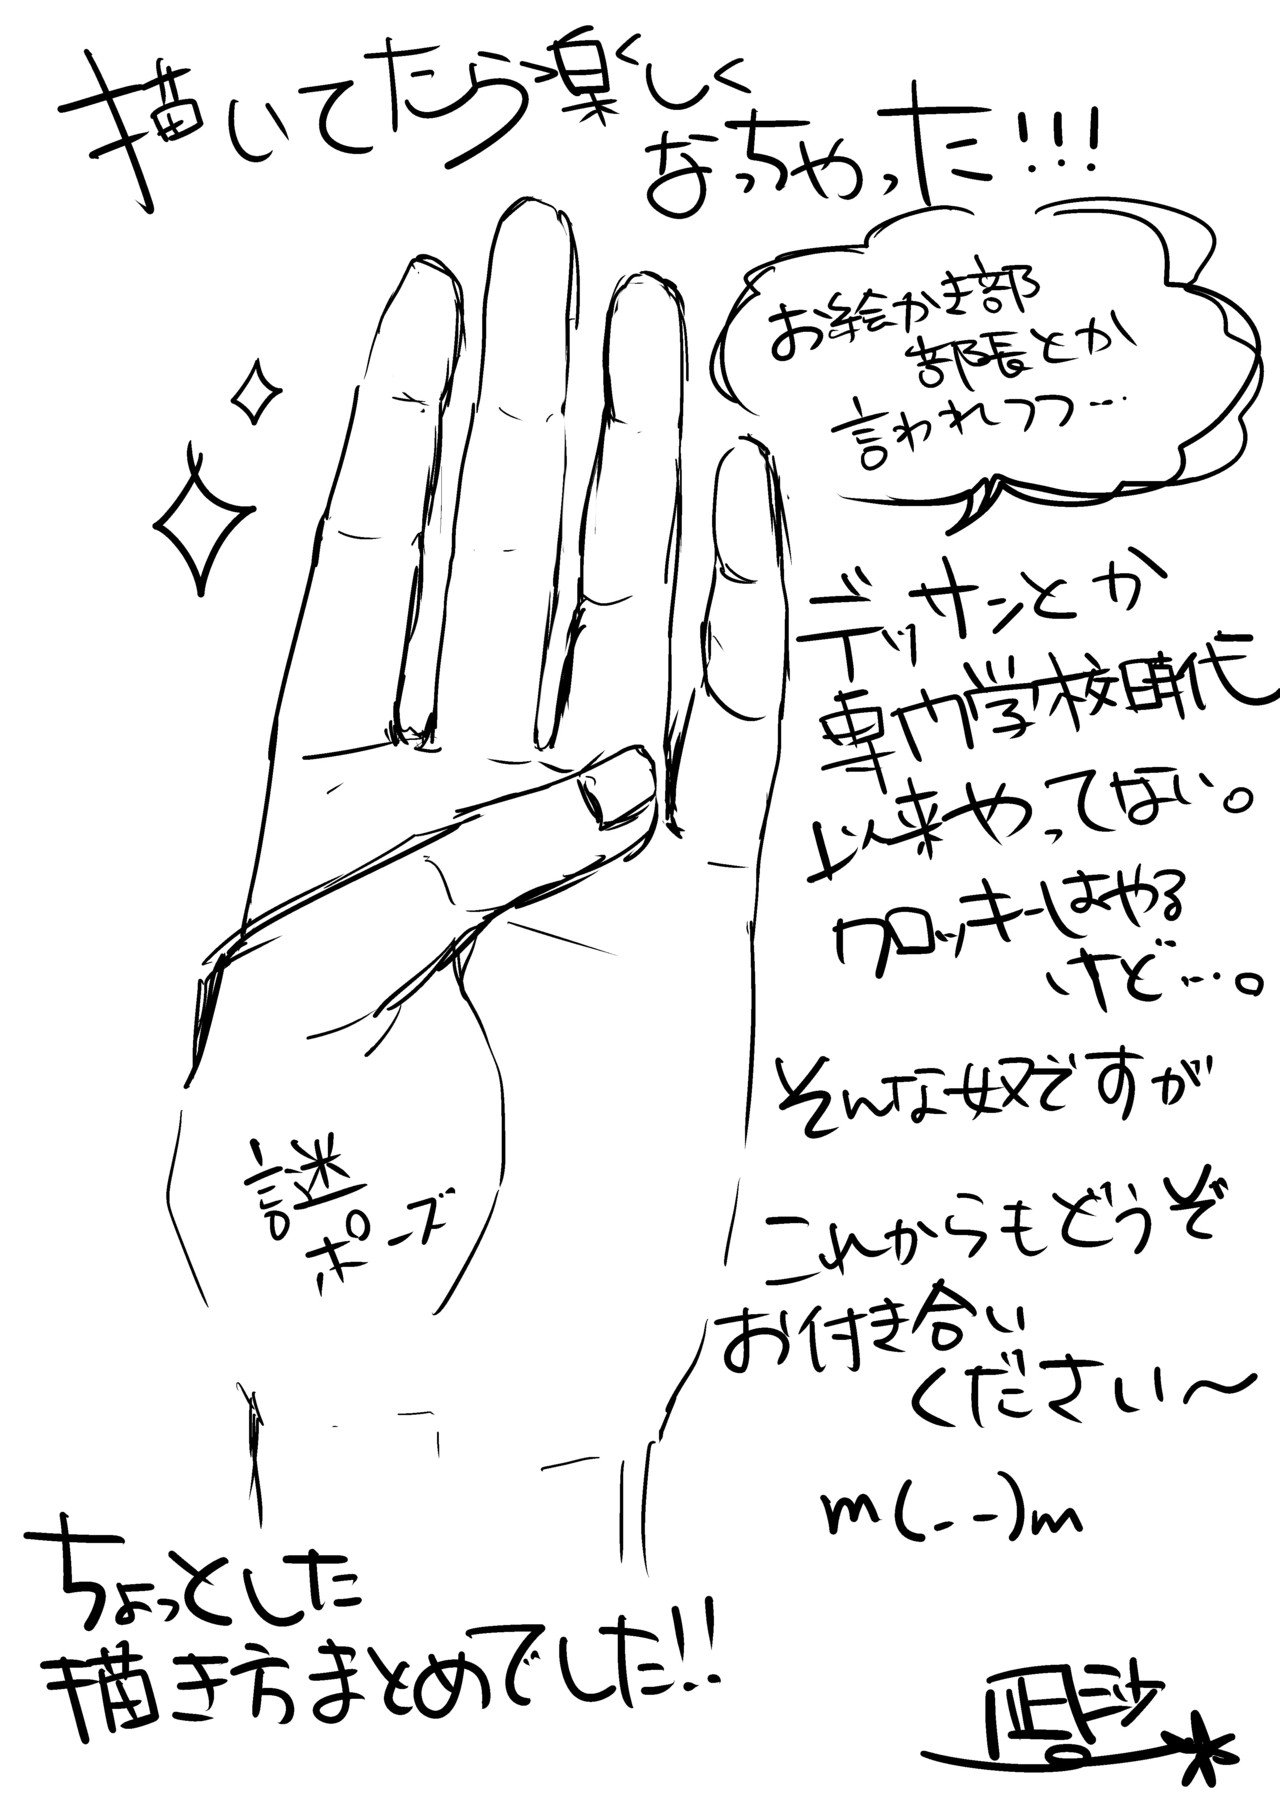 描いてたら楽しく
なっちゃった!!!
お絵かき部
部長とか
言われつつ…
デッサンとか
専門学校時代
以来やってない。
クロッキーはやる
けど…。
そんな奴ですが
これからもどうぞ
お付き合い
ください〜
m(_ _)m
謎
ポーズ
ちょっとした
描き方まとめでした!!